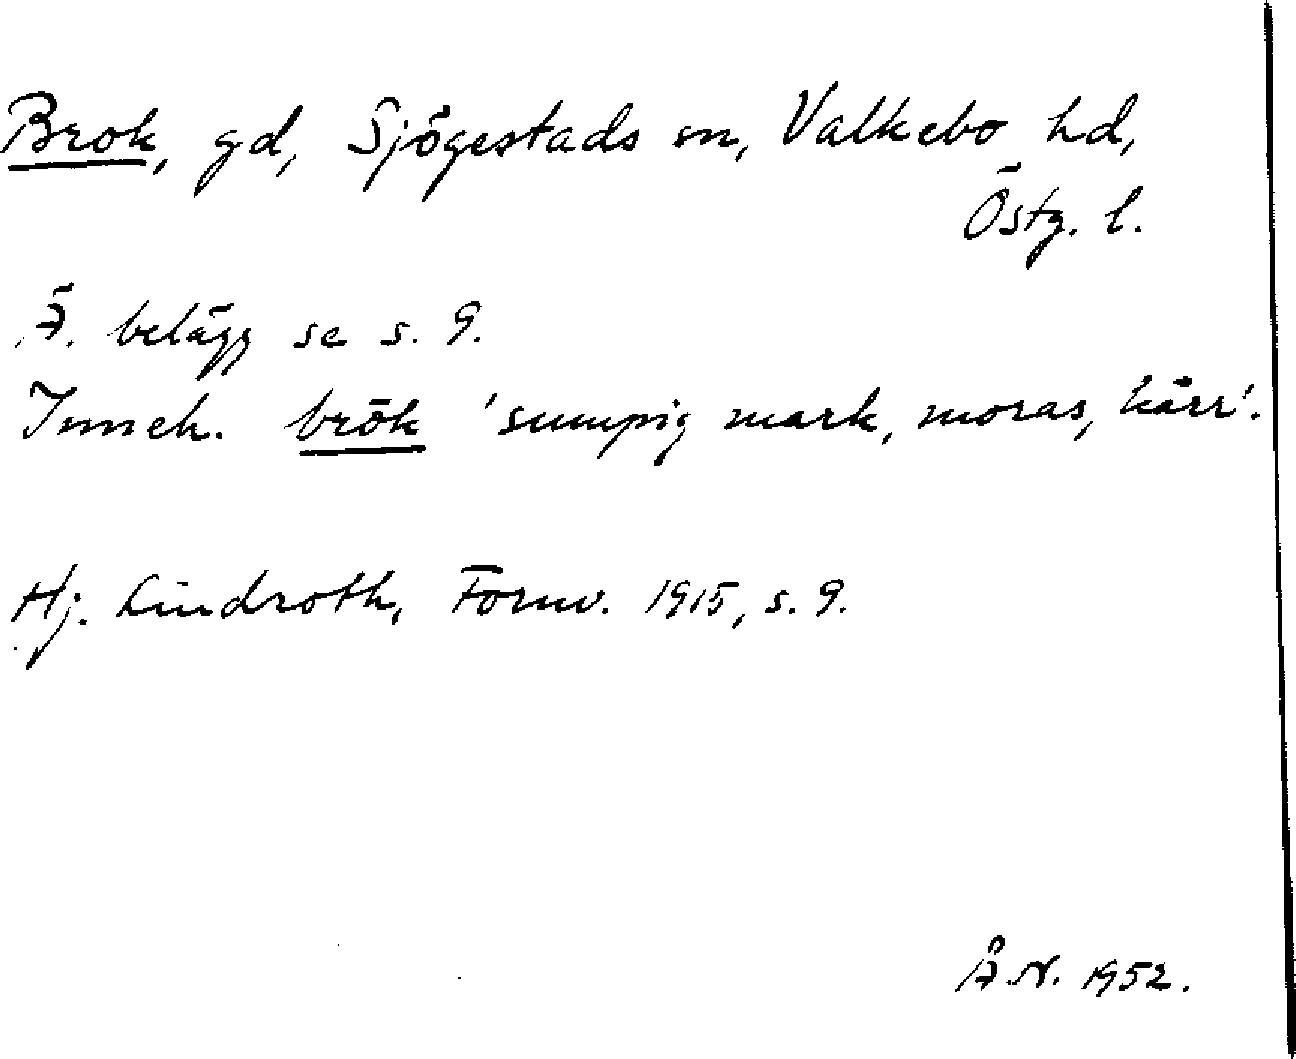 Brok, gd, Sjögestads sn, Valkebo hd,
Östg. l.
Ä. belägg se s. 9.
Inneh. brōk 'sumpig mark, moras, kärr'.
Hj. Lindroth, Fornv. 1915, s. 9.
Å N. 1952.